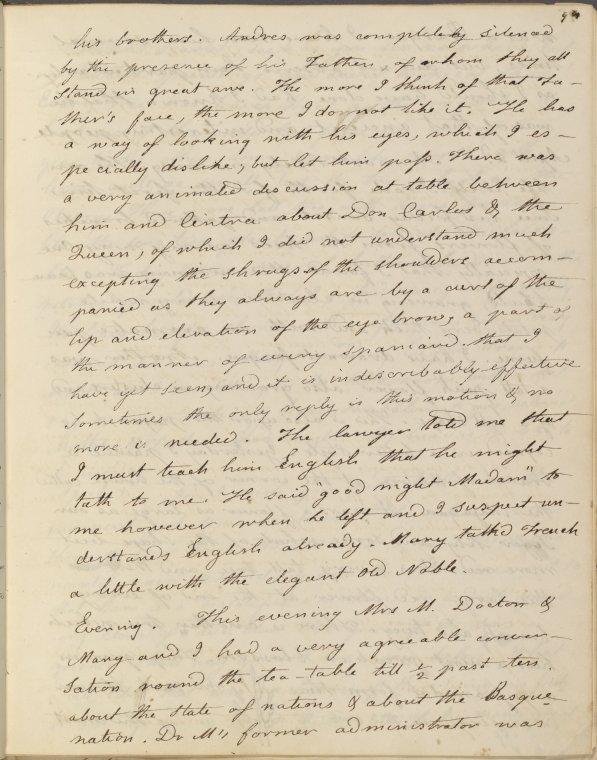 his brothers. Andres was completely silenced
by the presence of his Father, of whom they all
stand in great awe. The more I think of that Fa-
ther's face, the more I do not like it. He has
a way of looking with his eyes, which I es-
pecially dislike, but let him pass. There was
a very animated discussion at table between
him and Cintra about Don Carlos & the
Queen, of which I did not understand much
excepting the shrugs of the shoulders accom-
panied as they always are by a curl of the
lip and elevation of the eye brows, a part of
the manner of every spaniard that I
have yet seen, and it is indescribably effective
Sometimes the only reply is this motion & no
more is needed. The lawyer told me that
I must teach him English that he might
talk to me. He said "good night Madam" to
me however when he left and I suspect un-
derstands English already. Mary talkd French
a little with the elegant old Noble.
Evening. This evening Mrs M. Doctor &
Mary and I had a very agreeable conver-
sation round the tea-table till ½ past ten.
about the state of nations & about the Basque
nation. Dr M's former administrator was